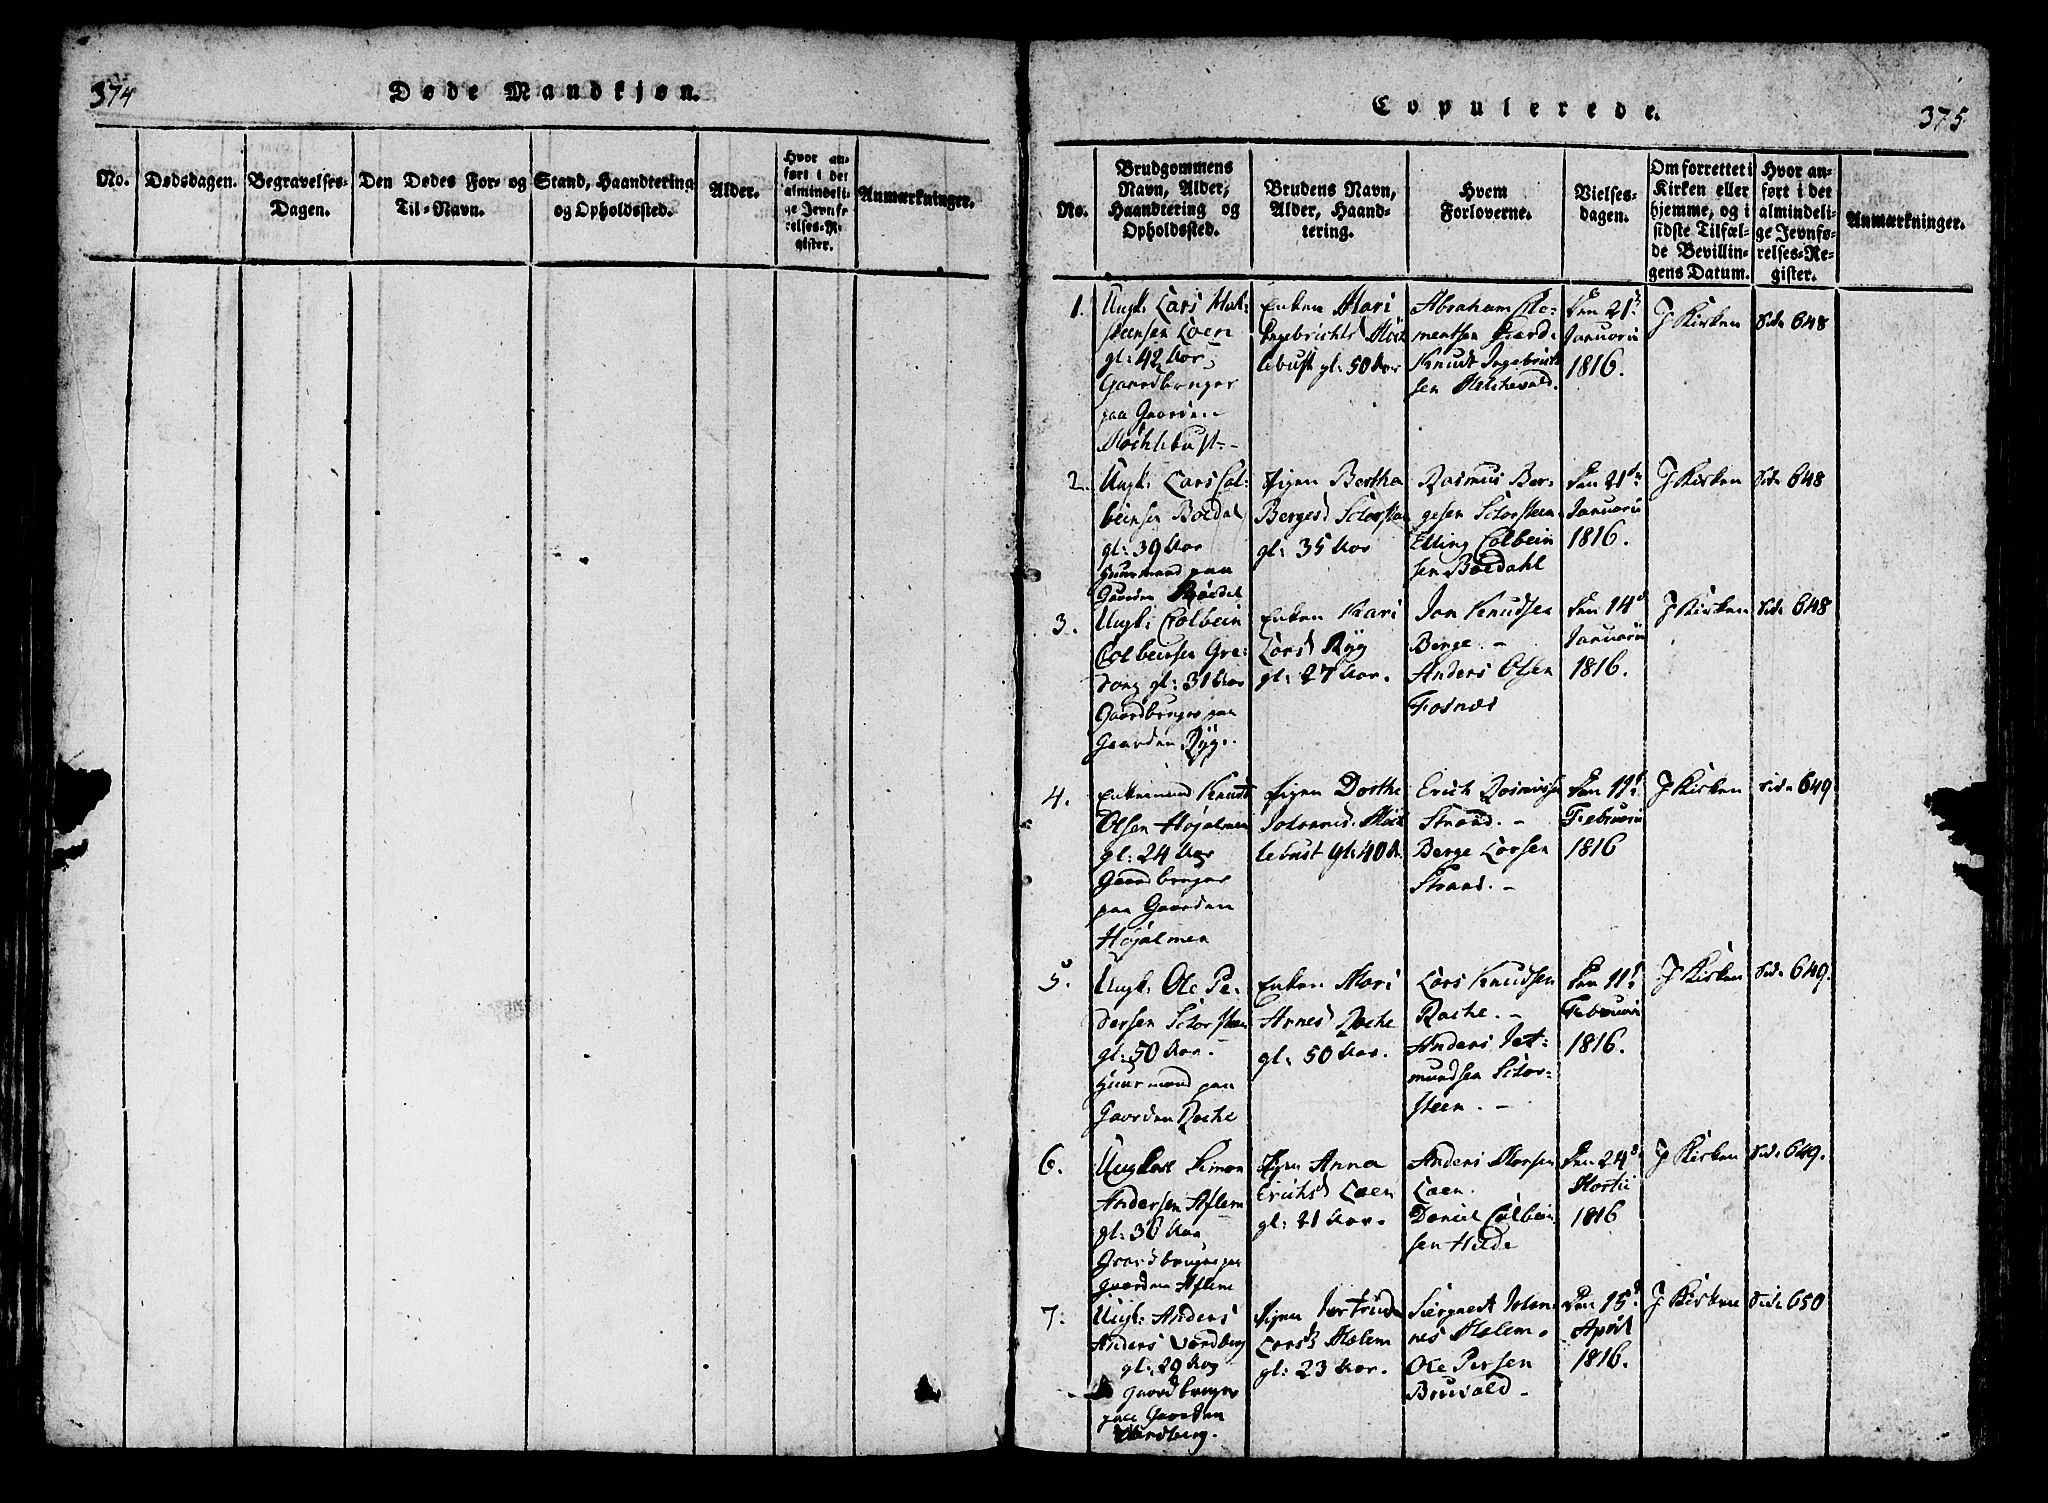 374
Døde Mandkjøn.
No.
Dødsdagen.
Begravelses-
Dagen.
Den Dødes For- og
Til-Navn.
Stand, Haandtering
og Opholdssted.
Alder.
Hvor an-
ført i det
almindeli-
ge Jevnfø-
relses-Re-
gister.
Anmærkninger.
Copulerede.
375
No.
Brudgommens
Navn, Alder,
Haandtering og
Opholdssted.
Brudens Navn,
Alder, Haand-
tering.
Hvem
Forloverne.
Vielses-
dagen.
Om forrettet i
Kirken eller
hjemme, og i
sidste Tilfæl-
de Bevillin-
gens Datum.
Hvor an-
ført i det
almindeli-
ge Jevnfø-
relses-Re-
gister.
Anmærkninger.
1.
Ungk: Lars
Loen
gl: 42 Aar
Gaardbruger
paa Gaarden
Enken Mari
gl: 50 Aar
Abraham Cle-
mentsen
Knudt Ingebrigt-
sen
Den 21de
Januarii
1816.
J Kirken
Side 648
2.
Ungk: Lars Col-
beinsen Boedal
gl: 39 Aar
Huusmand paa
Gaarden Bödal
Pigen Bertha
Bergesd
gl: 35 Aar
Rasmus Ber-
gesen
Elling Colbein
sen Böedahl
Den 21de
Januarii
1816.
J Kirken
Side 648
3.
Ungk: Colbein
Colbeinsen Gre-
dong gl: 31 Aar
Gaardbruger paa
Gaarden Ryg.
Enken Kari
Larsd Ryg
gl: 27 Aar.
Jon Knudsen
Berge. -
Anders Olsen
Fosnæs
Den 14de
Januarii
1816.
J Kirken
Side 648
4.
Enkemand Knudt
Olsen Höjalmen
gl: 24 Aar
Gaardbruger
paa Gaarden
Höjalmen
Pigen Dorthe
Johannesd.
lebust gl: 40 A.
Erich Rasmussen
Straad. -
Berge Larsen
Straad. -
Den
Februarii
1816
J Kirken
Side 649
5.
Ungk: Ole Pe-
dersen
gl: 50 Aar. -
Huusmand paa
Gaarden Rache
Enken Mari
Arnesd Rache
gl: 50 Aar.
Lars Knudsen
Rache. -
Anders Jet-
mundsen Stor-
steen. -
Den 11te
Februarii
1816.
J Kirken
Side 649.
6.
Ungkarl Simon
Andersen Aflem
gl: 36 Aar
Gaardbruger paa
gaarden Aflem
Pigen Anna
Erichsd Loen
gl: 21 Aar.
Anders
Loen.
Daniel Colbein
sen Hilde
Den 24de
Martii
1816
J Kirken
Side 649.
7.
Ungk: Anders
Anders Vardberg
gl: 29 Aar
gaardbruger
paa Gaarden
Vardberg.
Pigen Jertrude
Larsd Melem
gl: 23 Aar.
Siergaest Johan
nes Melem.
Ole Persen
Bruvold. -
Den 15de
April
1816.
J Kirken
Side 650